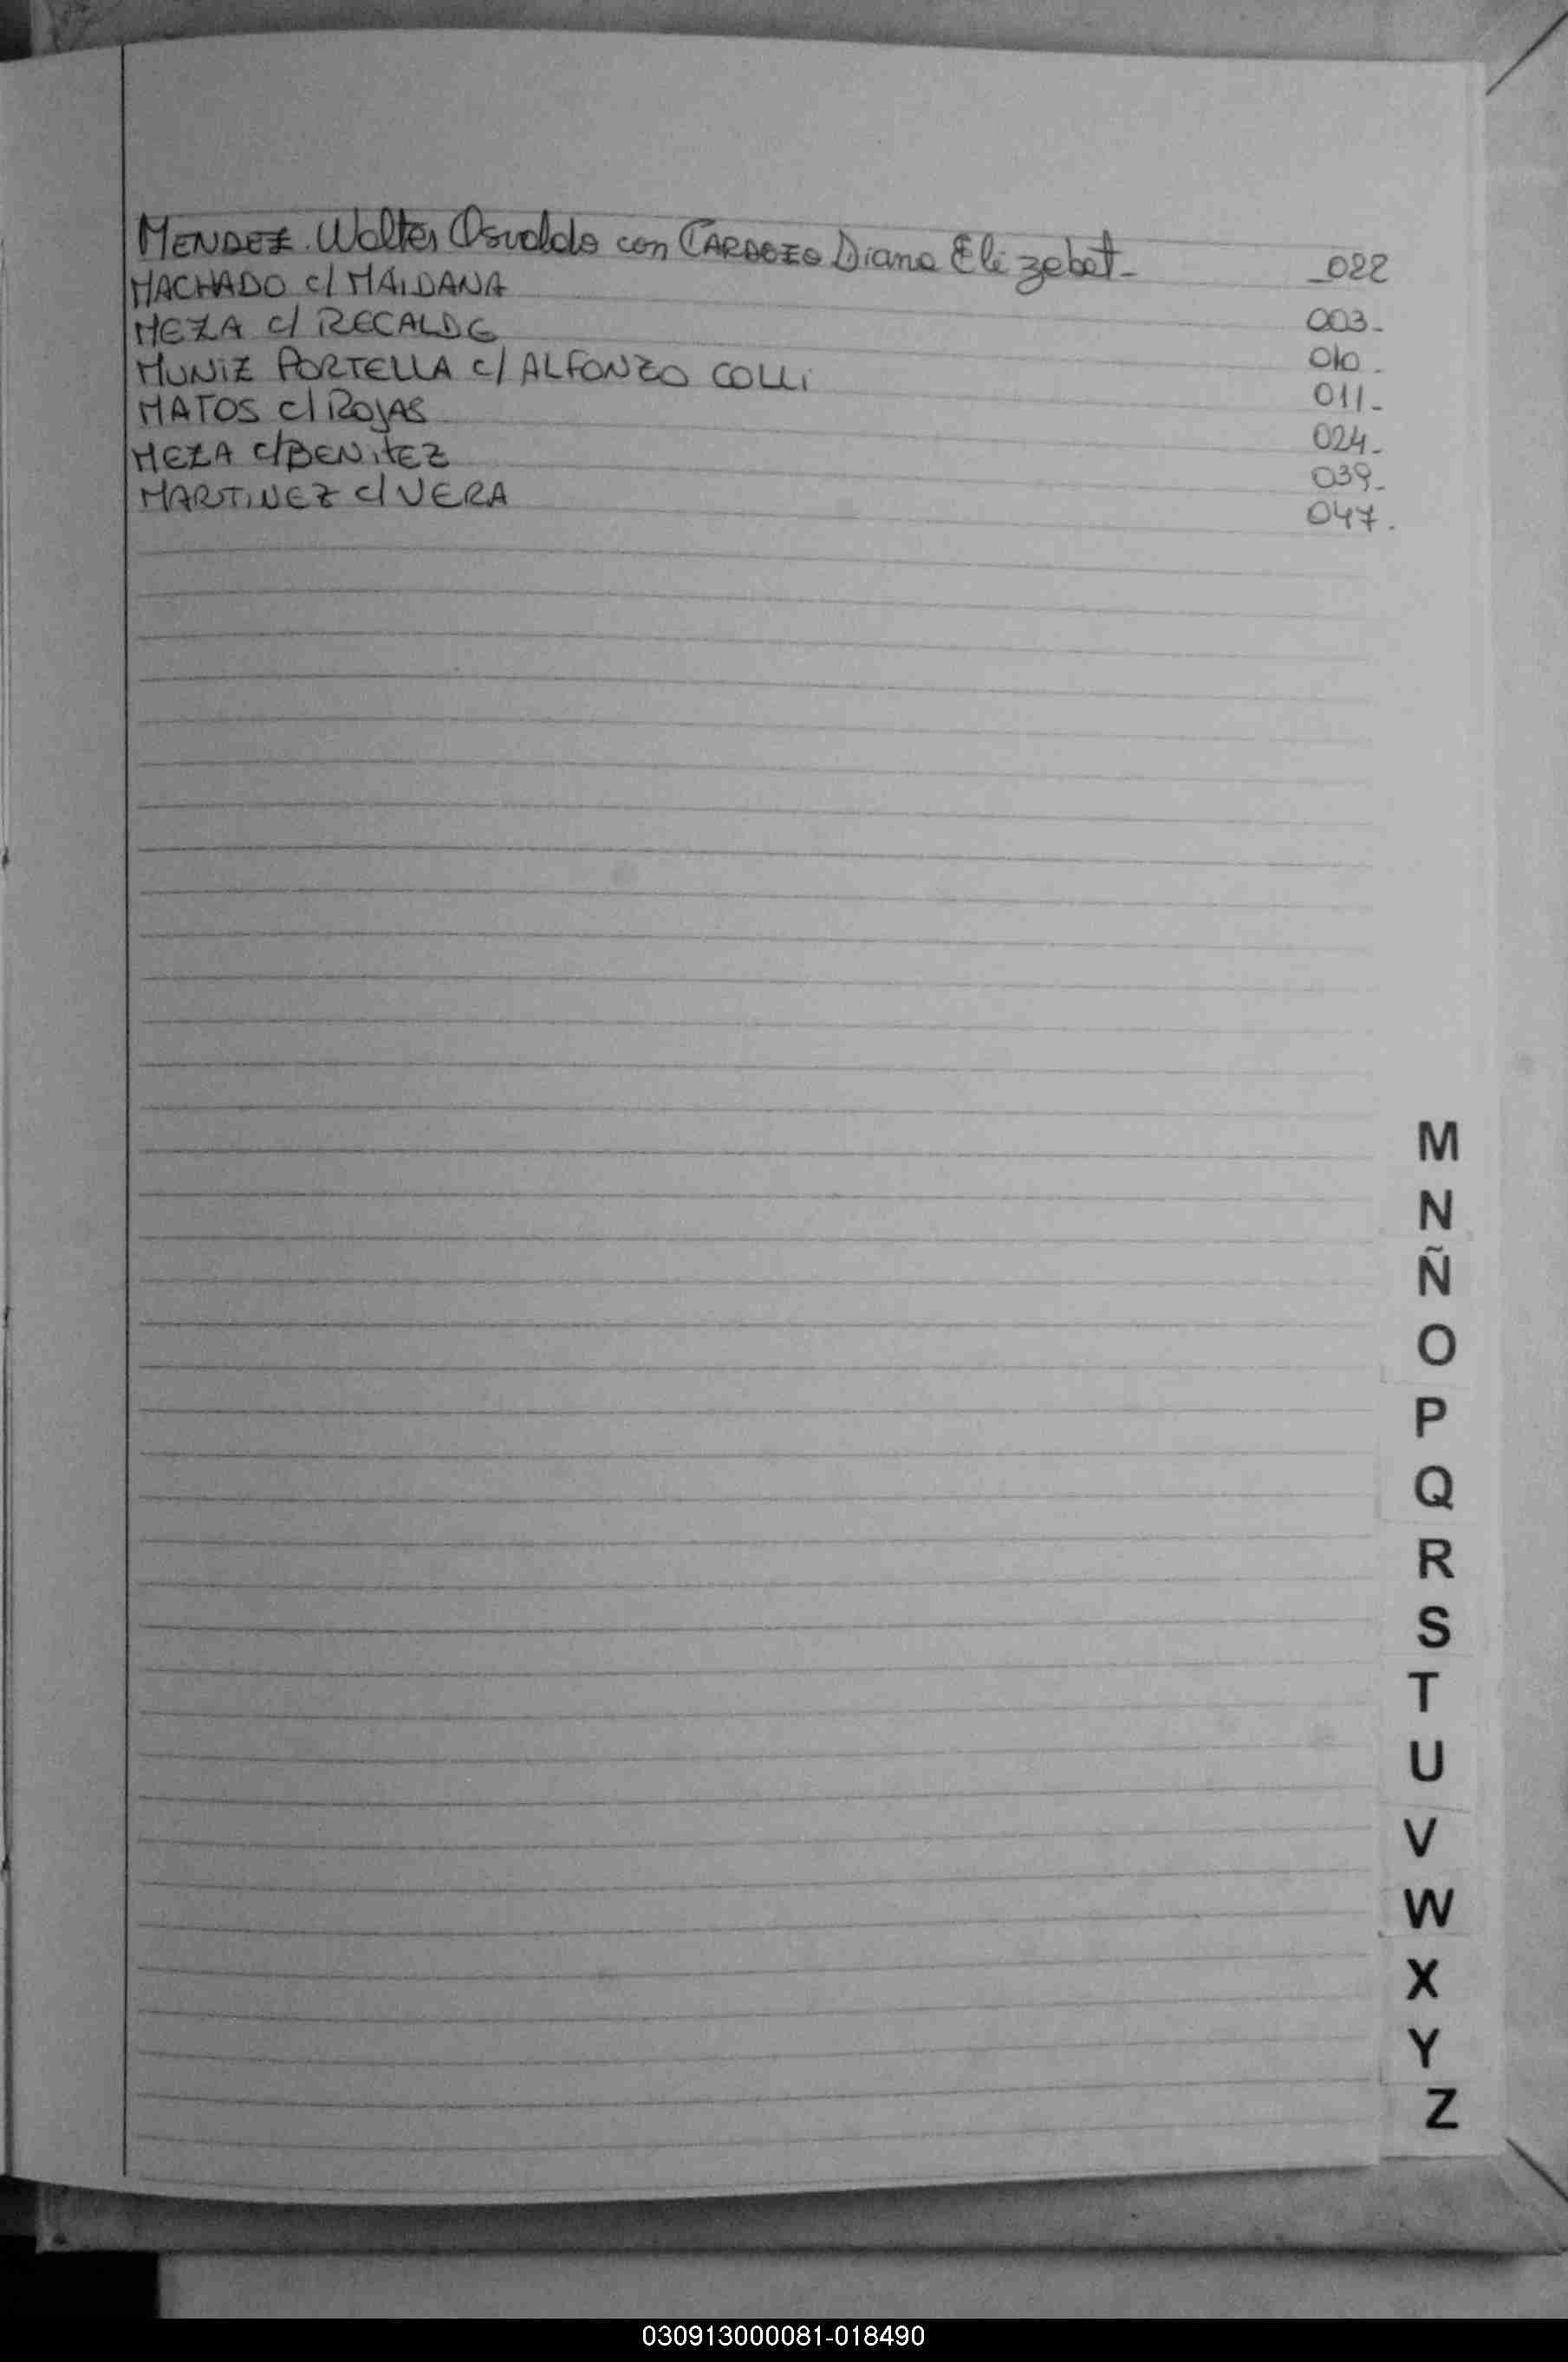 MENDEZ. Walter Osvaldo con CARDOZO Diana Elizabet- _022
MACHADO c/ MAIDANA 003-
MEZA c/ RECALDE 010.
MUNIZ PORTELLA c/ ALFONZO COLLI 011-
MATOS c/ ROJAS 024-
MEZA c/ BENITEZ 039-
MARTINEZ c/ VERA 047.
M
N
Ñ
O
P
Q
R
S
T
U
V
W
X
Y
Z
030913000081-018490